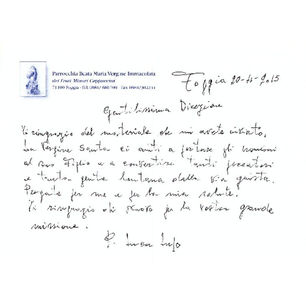 Parrocchia Beata Maria Vergine Immacolata
dei Frati Minori Cappuccini
71100 Foggia - Tel.
Foggia 20-11-2015
Gentilissima Direzione
Vi ringrazio del materiale che mi avete inviato,
La Vergine Santa ci aiuti a portare gli uomini
al suo Figlio e a convertire tanti peccatori
e tanta gente lontana dalla via giusta.
Pregate per me e per la mia salute.
Vi ringrazio di cuore per la vostra grande
missione.
P.